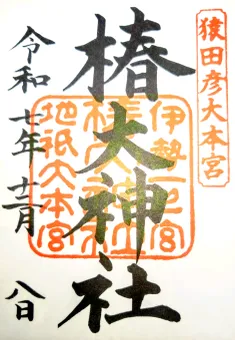 猿田彦大本宮
椿大神社
伊勢一之宮
椿大神社
地祇大本宮
令和七年十二月八日